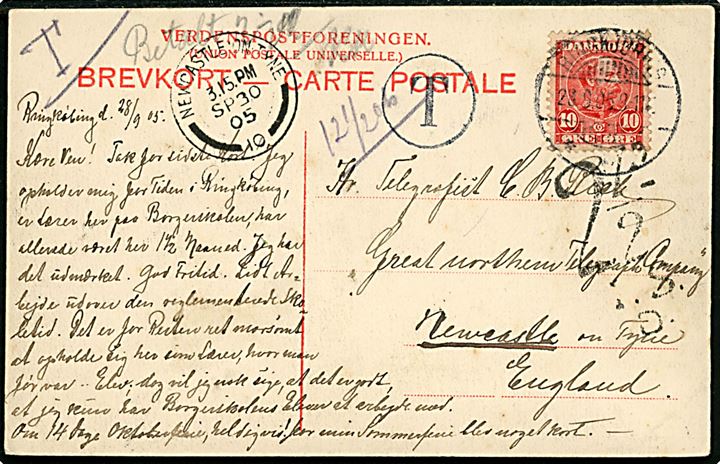 VERDENSPOSTFORENINGEN.
(UNION POSTALE UNIVERSELLE.)
BREVKORT — CARTE POSTALE
T
Betalt
NEWCASTLE-ON-TYNE
3.15.PM
SP 30
05
10
T
12½
10 10
ØRE
Ringkøbing d. 28/9 05.
Kære Ven! Tak for sidste kort. Jeg
opholder mig for Tiden i Ringkøbing,
er Lærer her paa Borgerskolen, har
allerede været her 1½ Maaned. Jeg har
det udmærket. God Fritid. Lidt Ar-
bejde udover den reglementerede Sko-
letid. Det er for Resten ret morsomt
at opholde sig her som Lærer, hvor man
før var Elev. dog vil jeg nok sige, at det er godt,
at jeg kun har Borgerskolens Elever at arbejde med.
Om 14 Dage Oktoberferie, heldigvis! for min Sommerferie blev noget kort. —
Hr. Telegrafist C. B.
"Great northern Telegraph Company"
Newcastle on Tyne
England.